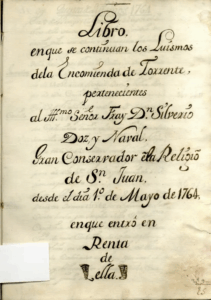 Libro.
en que se continuan los Luismos
dela Encomienda de Torrente,
pertenecientes
al Ill.mo Señor Fray D.n Silverio
Doz y Naval,
Gran Conservador dela Religio
de S.n Juan,
desde el dia 1.o de Mayo de 1764.
en que entró en
Renta
de
ella.